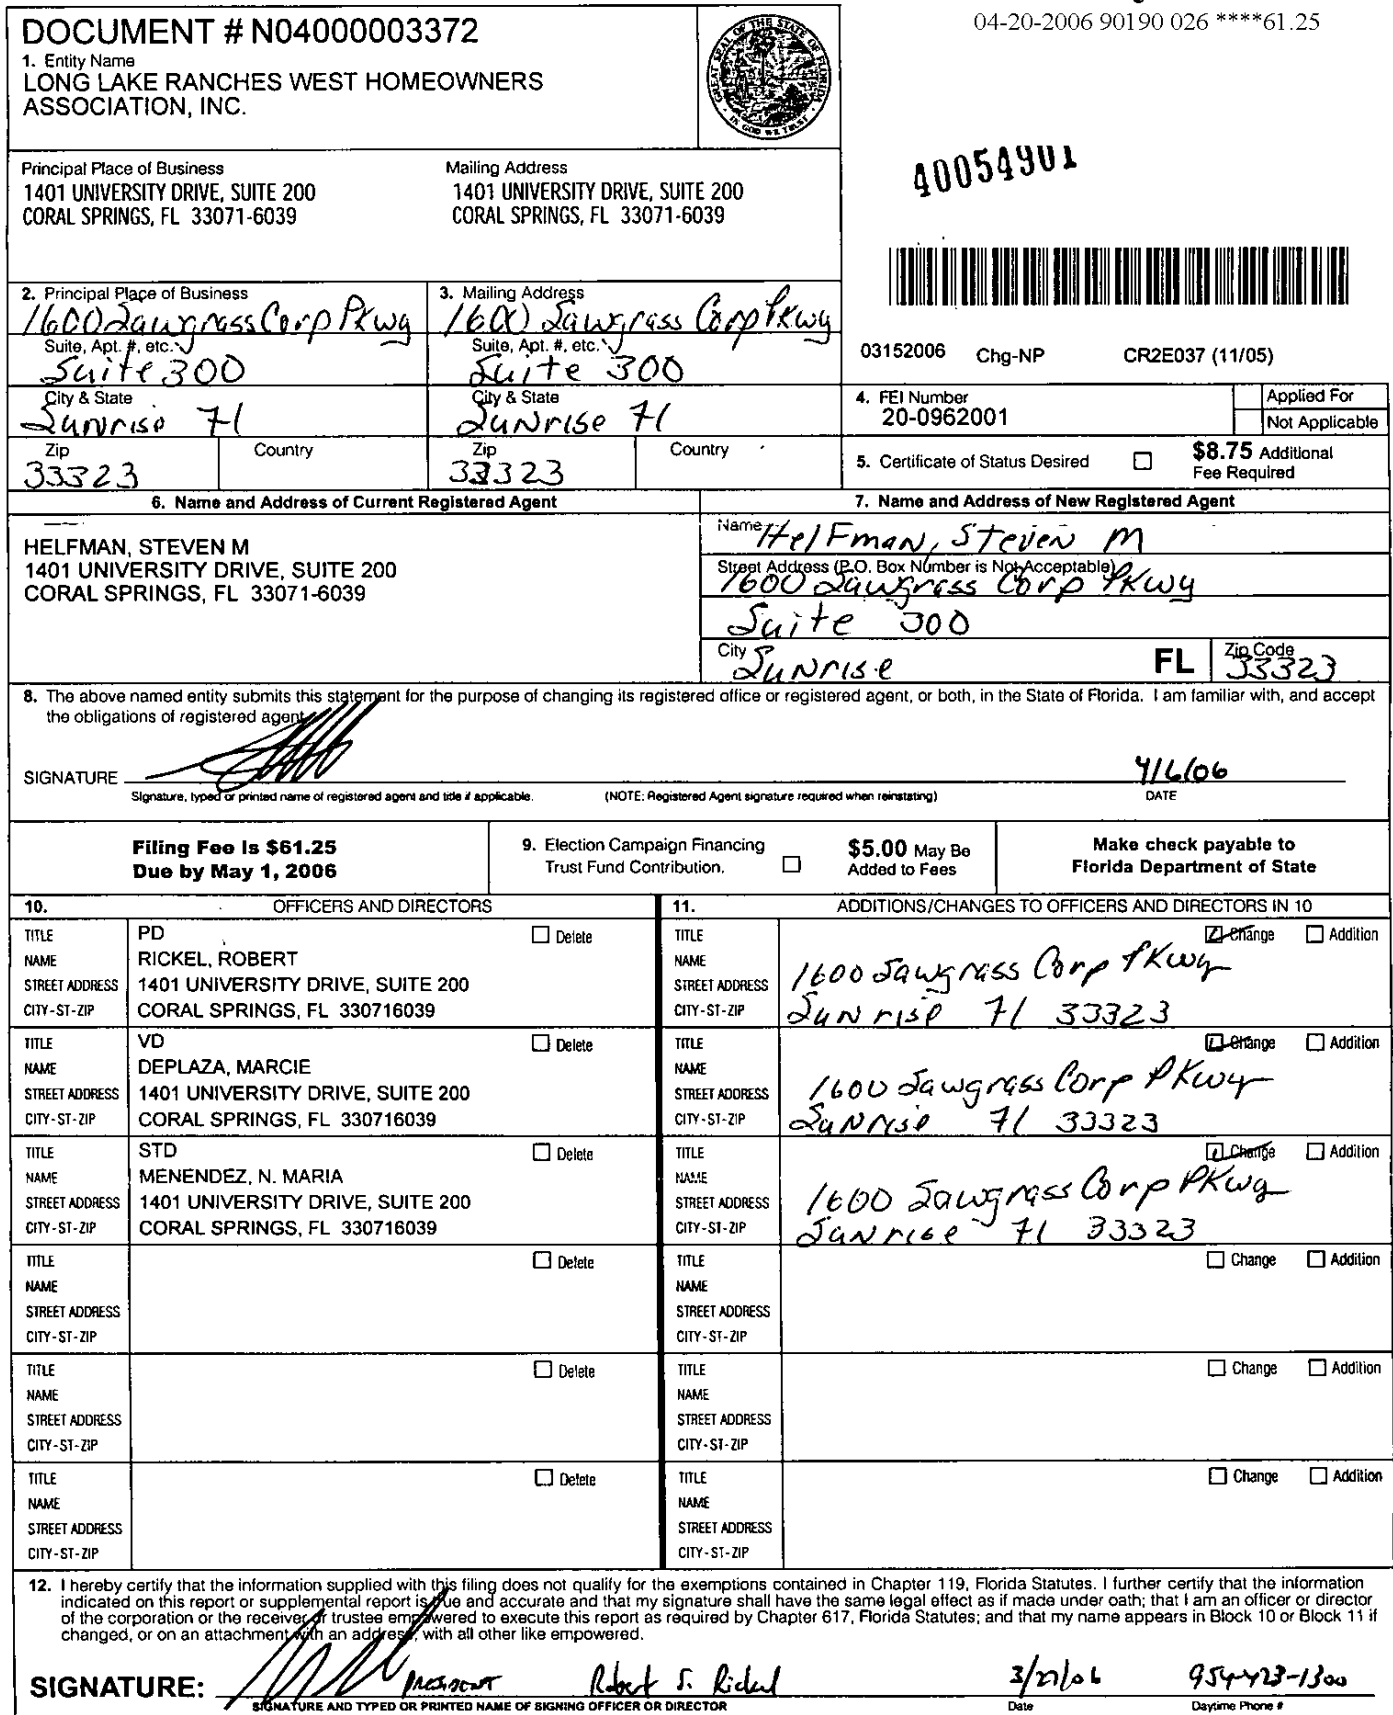 04-20-2006 90190 026 ****61.25
DOCUMENT # N04000003372
1. Entity Name
LONG LAKE RANCHES WEST HOMEOWNERS
ASSOCIATION, INC.
GREAT SEAL OF THE STATE OF FLORIDA
IN GOD WE TRUST
40054901
Principal Place of Business
1401 UNIVERSITY DRIVE, SUITE 200
CORAL SPRINGS, FL 33071-6039
Mailing Address
1401 UNIVERSITY DRIVE, SUITE 200
CORAL SPRINGS, FL 33071-6039
2. Principal Place of Business
1600 Sawgrass Corp Pkwy
Suite, Apt. #, etc.
Suite 300
City & State
Sunrise Fl
Zip
33323
Country
3. Mailing Address
1600 Sawgrass Corp Pkwy
Suite, Apt. #, etc.
Suite 300
City & State
Sunrise Fl
Zip
33323
Country
03152006 Chg-NP CR2E037 (11/05)
4. FEI Number
20-0962001
Applied For
Not Applicable
5. Certificate of Status Desired
$8.75 Additional
Fee Required
6. Name and Address of Current Registered Agent
HELFMAN, STEVEN M
1401 UNIVERSITY DRIVE, SUITE 200
CORAL SPRINGS, FL 33071-6039
7. Name and Address of New Registered Agent
Name Helfman, Steven M
Street Address (P.O. Box Number is Not Acceptable)
1600 Sawgrass Corp PKwy
Suite 300
City Sunrise FL Zip Code 33323
8. The above named entity submits this statement for the purpose of changing its registered office or registered agent, or both, in the State of Florida. I am familiar with, and accept
the obligations of registered agent.
SIGNATURE
4/6/06
Signature, typed or printed name of registered agent and title if applicable. (NOTE: Registered Agent signature required when reinstating) DATE
Filing Fee is $61.25
Due by May 1, 2006
9. Election Campaign Financing
Trust Fund Contribution.
$5.00 May Be
Added to Fees
Make check payable to
Florida Department of State
10. OFFICERS AND DIRECTORS
11. ADDITIONS/CHANGES TO OFFICERS AND DIRECTORS IN 10
TITLE PD Delete
NAME RICKEL, ROBERT
STREET ADDRESS 1401 UNIVERSITY DRIVE, SUITE 200
CITY-ST-ZIP CORAL SPRINGS, FL 330716039
TITLE Change Addition
NAME
STREET ADDRESS 1600 Sawgrass Corp PKwy
CITY-ST-ZIP Sunrise Fl 33323
TITLE VD Delete
NAME DEPLAZA, MARCIE
STREET ADDRESS 1401 UNIVERSITY DRIVE, SUITE 200
CITY-ST-ZIP CORAL SPRINGS, FL 330716039
TITLE Change Addition
NAME
STREET ADDRESS 1600 Sawgrass Corp PKwy
CITY-ST-ZIP Sunrise Fl 33323
TITLE STD Delete
NAME MENENDEZ, N. MARIA
STREET ADDRESS 1401 UNIVERSITY DRIVE, SUITE 200
CITY-ST-ZIP CORAL SPRINGS, FL 330716039
TITLE Change Addition
NAME
STREET ADDRESS 1600 Sawgrass Corp PKwy
CITY-ST-ZIP Sunrise Fl 33323
TITLE Delete
NAME
STREET ADDRESS
CITY-ST-ZIP
TITLE Change Addition
NAME
STREET ADDRESS
CITY-ST-ZIP
TITLE Delete
NAME
STREET ADDRESS
CITY-ST-ZIP
TITLE Change Addition
NAME
STREET ADDRESS
CITY-ST-ZIP
TITLE Delete
NAME
STREET ADDRESS
CITY-ST-ZIP
TITLE Change Addition
NAME
STREET ADDRESS
CITY-ST-ZIP
12. I hereby certify that the information supplied with this filing does not qualify for the exemptions contained in Chapter 119, Florida Statutes. I further certify that the information
indicated on this report or supplemental report is true and accurate and that my signature shall have the same legal effect as if made under oath; that I am an officer or director
of the corporation or the receiver or trustee empowered to execute this report as required by Chapter 617, Florida Statutes; and that my name appears in Block 10 or Block 11 if
changed, or on an attachment with an address, with all other like empowered.
SIGNATURE: PRESIDENT Robert S. Rickel 3/27/06 954-423-1300
SIGNATURE AND TYPED OR PRINTED NAME OF SIGNING OFFICER OR DIRECTOR Date Daytime Phone #